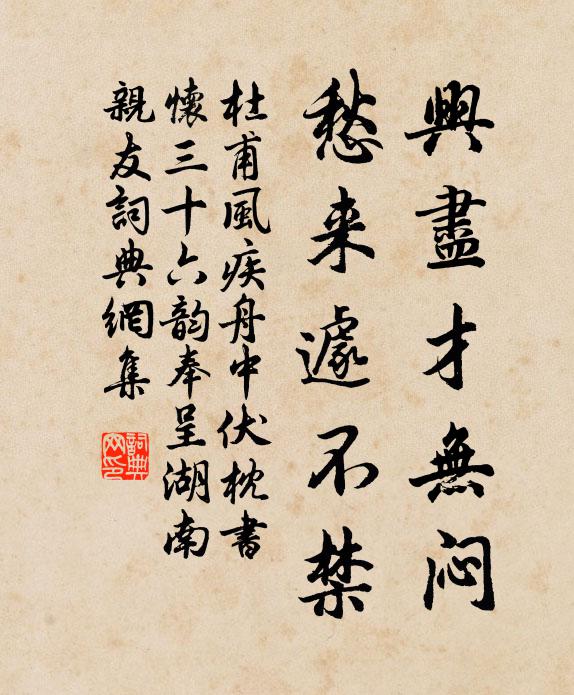 興盡才無悶
愁来遽不禁
杜甫風疾舟中伏枕書
懷三十六韵奉呈湖南
親友詞典網集
詞典
网印